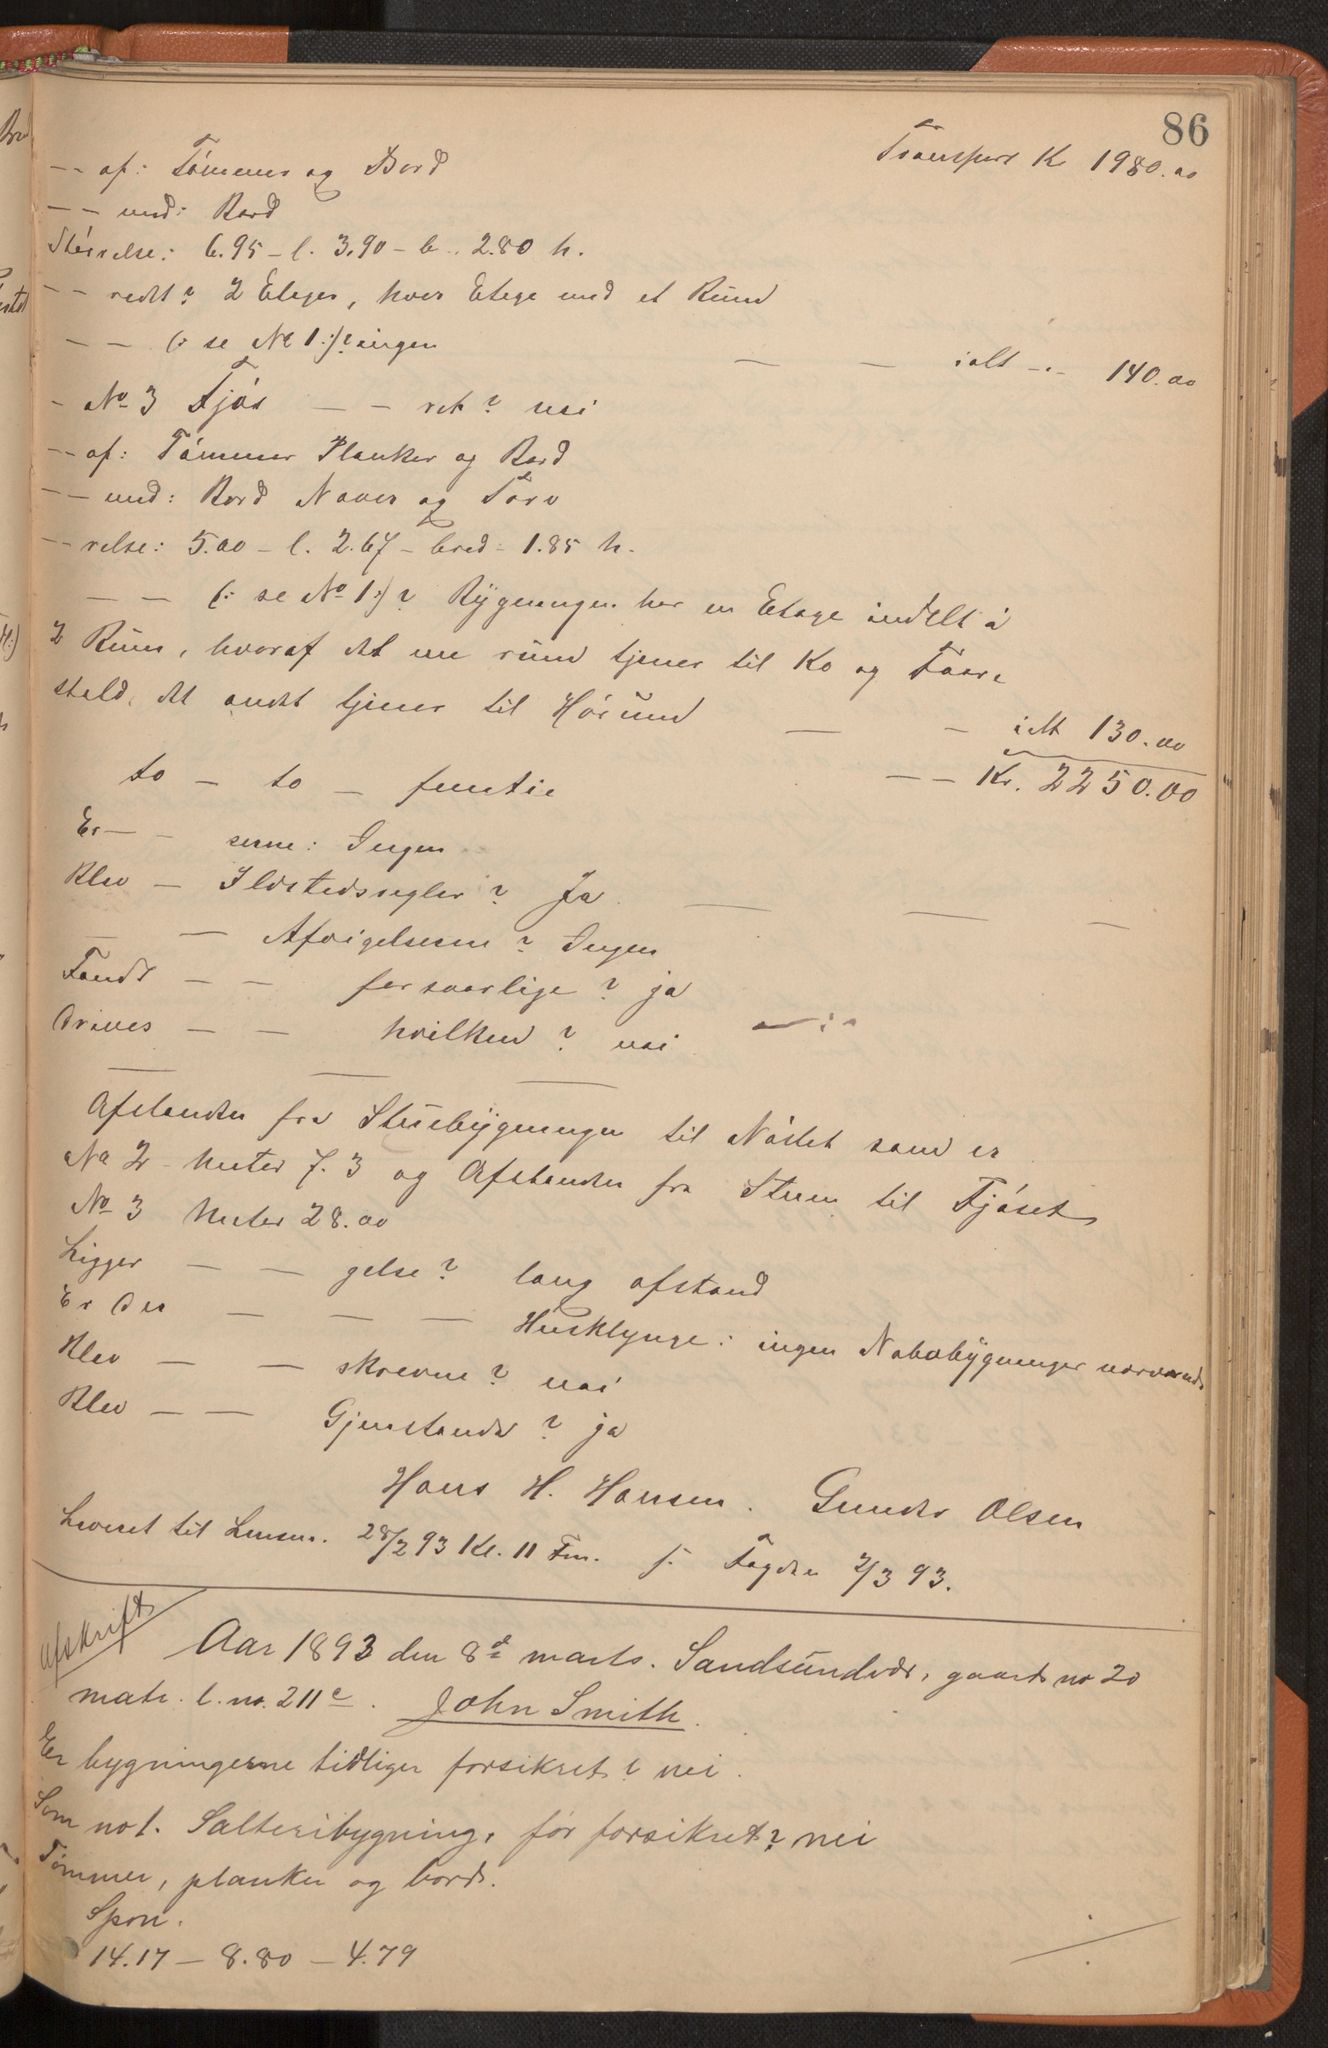 86
Transport K 1980.00
-- af: Tömmer og Bord
-- med: Bord
Störrelse: 6.95 - l. 3.90 - b. 2.80 h.
-- redt? 2 Etager, hver Etage med et Rum
-- (: se No 1 :)? ingen — — ialt -.- 140.00
- No 3 Fjös -- ret? nei
-- af: Tömmer Planker og Bord
-- med: Bord Naver og Torv
-- relse: 5.00 - l. 2.67 - bred - 1.85 h.
— — (: se No 1 :)? Bygningen har en Etage indelt i
2 Rum, hvoraf det ene rum tjener til Ko og Faare
stald, det andet tjener til Hörum — — ialt 130.00
to - to - femtie -- Kr. 2250.00
Er — - serne: Ingen
Blev — Ildstedsregler? Ja — — —
— — Afvigelserne? Ingen
Fandt — — forsvarlige? ja
Drives — — hvilken? nei
— — —
Afstanden fra Stuebygningen til Nöstet som er
No 2 - meter 7.3 og Afstanden fra Stuen til Fjöset
No 3 meter 28.00
Ligger — — gelse? lang afstand
Er der — — — Husklynge: ingen Nabobygninger nærværende
Blev — — skrevne? nei
Blev — — Gjenstande? ja
Hans H. Hansen. Gunder Olsen
Leveret til Lensm. 28/2 93 Kl. 11 Fm. f. Fogden 2/3 93.
Afskrift
Aar 1893 den 8de marts. Sandsundvær, gaards no 20
matr. l. no. 211c. John Smith.
Er bygningerne tidliger forsikret? nei.
Som no 1. Salteribygning, før forsikret? nei
Tømmer, planker og bord.
Spon.
14.17 — 8.80 — 4.79